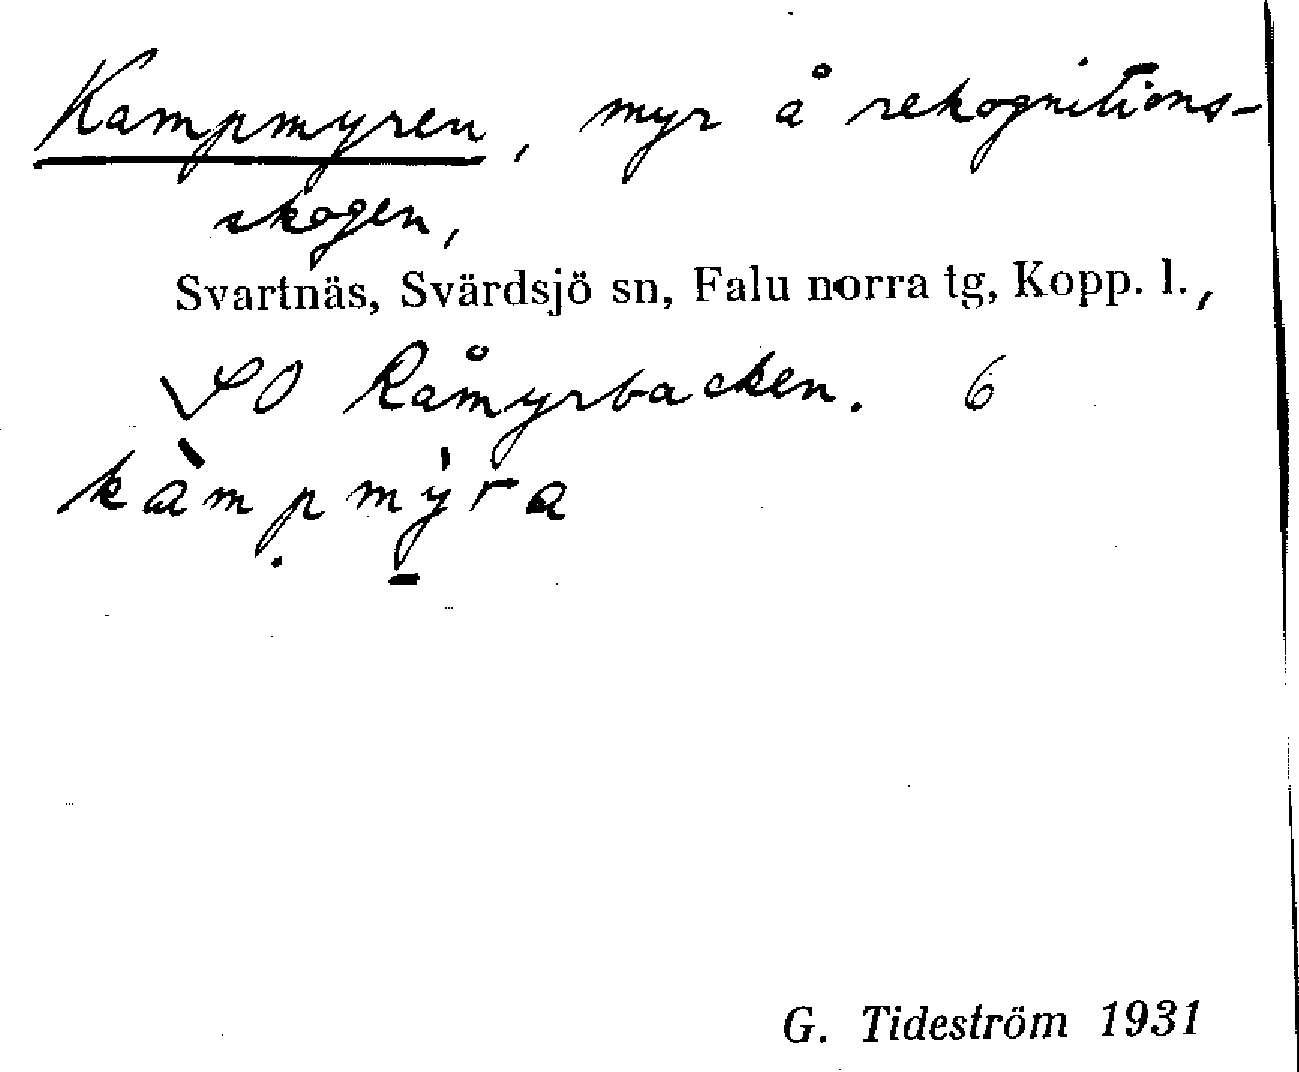 Kampmyren, myr å rekognitions-
skogen,
Svartnäs, Svärdsjö sn, Falu norra tg, Kopp. l.,
SO Råmyrbacken. 6
kàmpmy̠̍ra
G. Tideström 1931